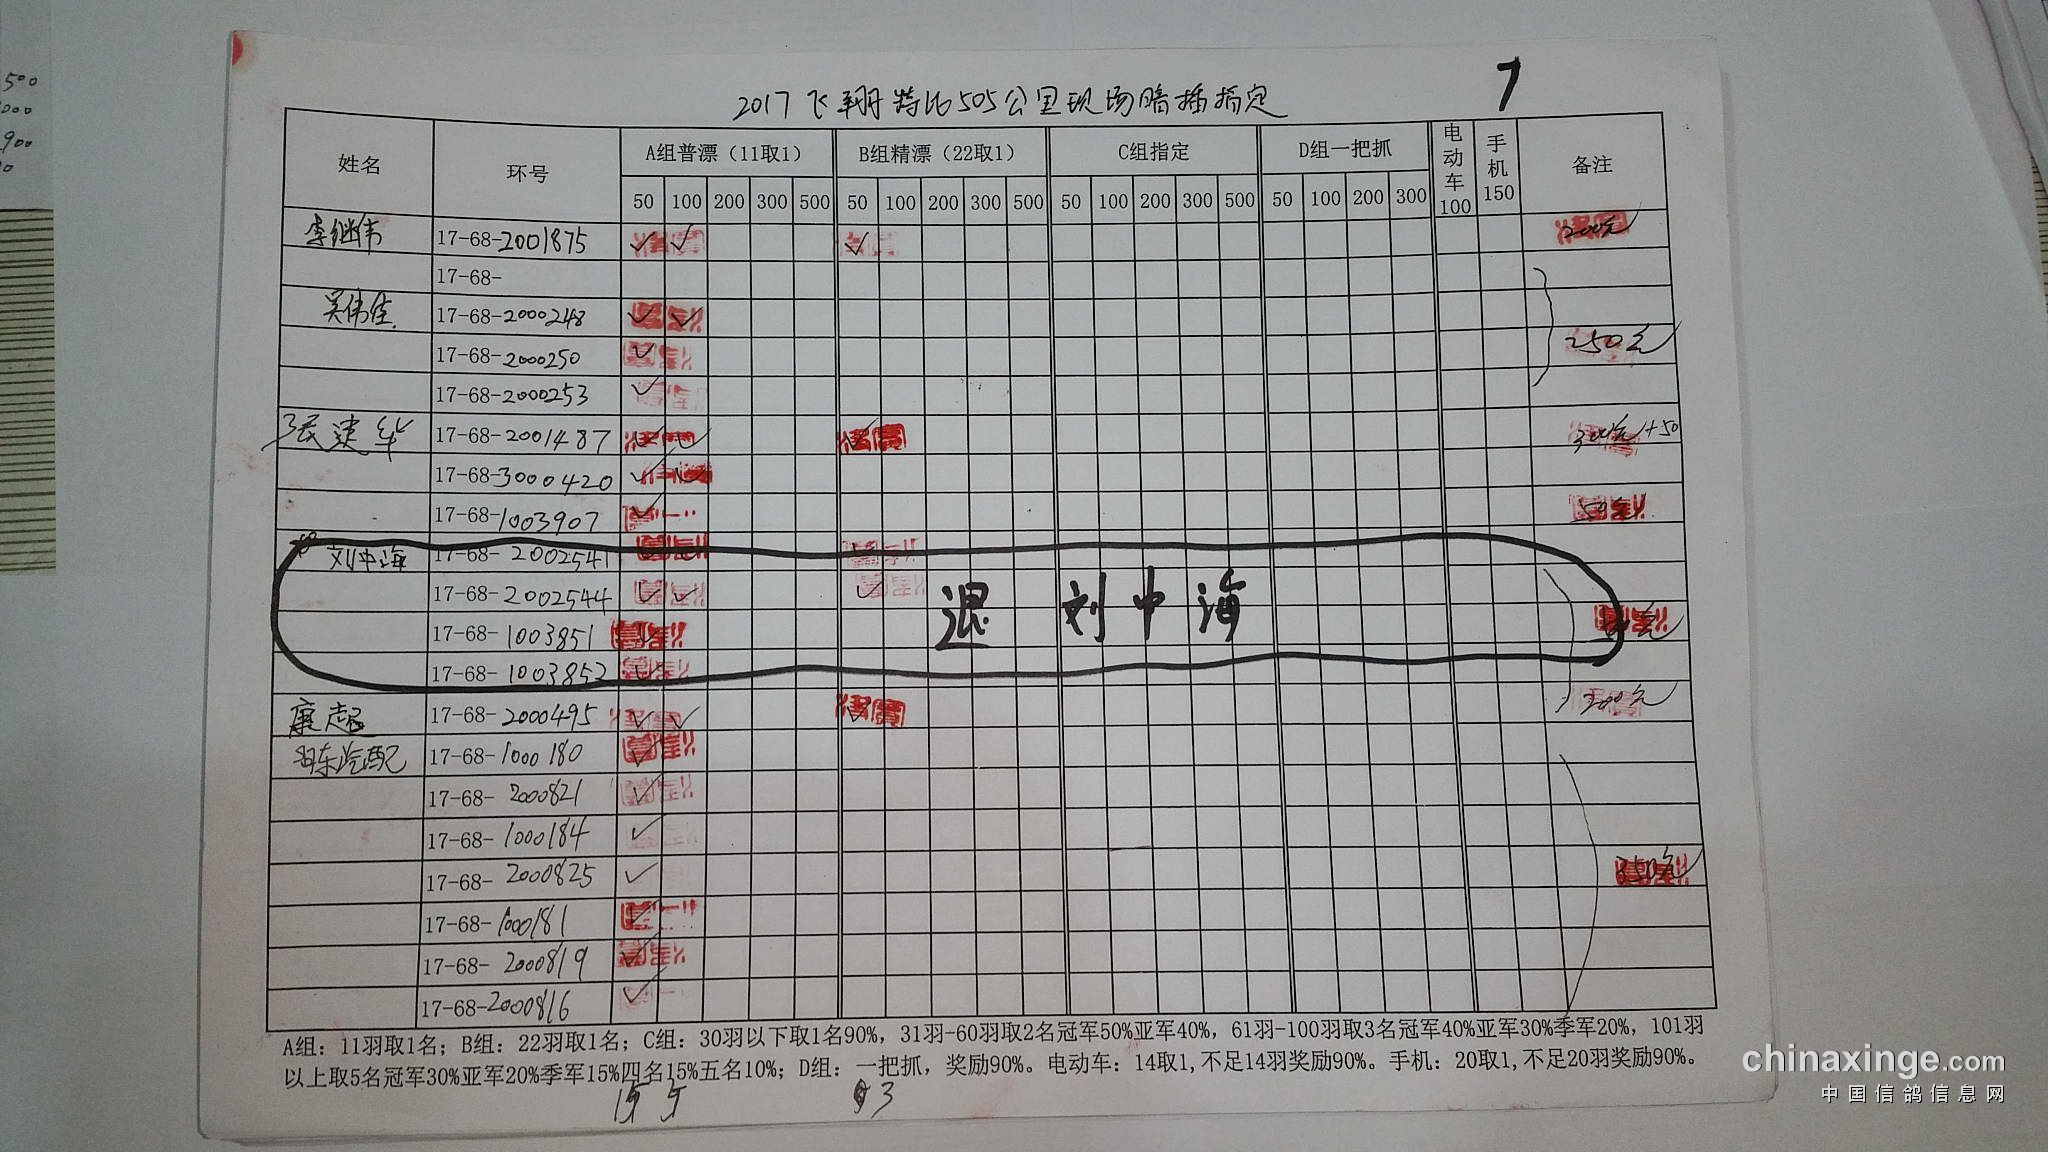 500
000
900
2017飞翔特比505公里现场暗插指定
7
姓名 环号 A组普漂（11取1） B组精漂（22取1） C组指定 D组一把抓 电动车100 手机150 备注
50 100 200 300 500 50 100 200 300 500 50 100 200 300 500 50 100 200 300
李继伟 17-68-2001875 ✓ ✓ ✓ 200元
17-68-
吴伟佳 17-68-2000248 ✓ ✓
17-68-2000250 ✓ 250元
17-68-2000253 ✓
张建华 17-68-2001487 ✓ ✓ ✓ 300元+50
17-68-3000420 ✓ ✓
17-68-1003907 ✓ 50元
刘中海 17-68-2002541
17-68-2002544 ✓ ✓ ✓
退 刘中海
17-68-1003851
17-68-1003852 ✓
康超 17-68-2000495 ✓ ✓ ✓ 200元
17-68-1000180 ✓
17-68-2000821 ✓
17-68-1000184 ✓
17-68-2000825 ✓ 350元
17-68-1000181 ✓
17-68-2000819 ✓
17-68-2000816 ✓
A组：11羽取1名；B组：22羽取1名；C组：30羽以下取1名90%，31羽-60羽取2名冠军50%亚军40%，61羽-100羽取3名冠军40%亚军30%季军20%，101羽
以上取5名冠军30%亚军20%季军15%四名15%五名10%；D组：一把抓，奖励90%。电动车：14取1,不足14羽奖励90%。手机：20取1,不足20羽奖励90%。
15 5 3
chinaxinge.com
中国信鸽信息网